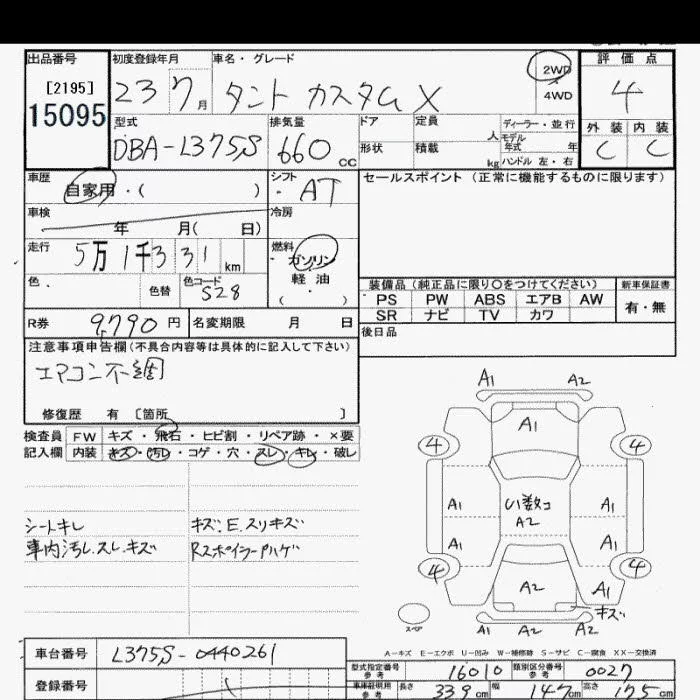 出品番号 初度登録年月 車名・グレード 2WD 評価点
[2195] 23 7月 タント カスタム X 4WD 4
15095
型式 排気量 ドア 定員 人 ディーラー・並行 外装 内装
モデル年式 年
DBA-L375S 660cc 形状 積載 kg ハンドル 左・右 C C
車歴 自家用・( ) シフト AT セールスポイント (正常に機能するものに限ります)
車検 年 月( 日) 冷房
走行 5万1千331km 燃料 ガソリン
軽油
・( )
色 色替 色コード S28 装備品(純正品に限り○をつけてください) 新車保証書
PS PW ABS エアB AW 有・無
SR ナビ TV カワ
R券 9,790円 名変期限 月 日 後日品
注意事項申告欄(不具合内容等は具体的に記入して下さい)
エアコン不調
修復歴 有 〔箇所 〕
検査員 FW キズ・飛石・ヒビ割・リペア跡・×要
記入欄 内装 キズ・汚レ・コゲ・穴・スレ・キレ・破レ
シートキレ キズ:E.スリキズ
車内汚レ.スレ.キズ Rスポイラーハゲ
A1 A2
A1
4 4
A1 A1
A2
A1 A1
4 4
A2 A1
キズ
スペア A1 A2 A2
A-キズ E-エクボ U-凹み W-補修跡 S-サビ C-腐食 XX-交換済
車台番号 L375S-0440261
型式指定番号 参考 16010 類別区分番号 参考 0027
登録番号
車庫証明用 参考 長さ 339cm 幅 147cm 高さ 175cm